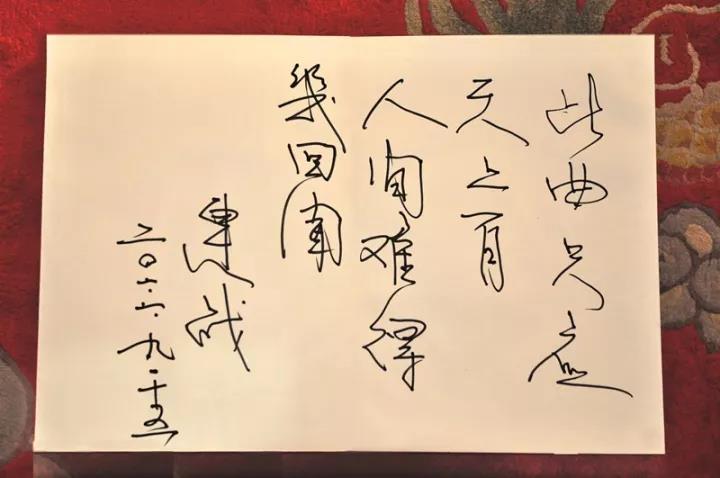 此曲只应
天上有
人间难得
幾回闻
連战
二〇一六.九.十五